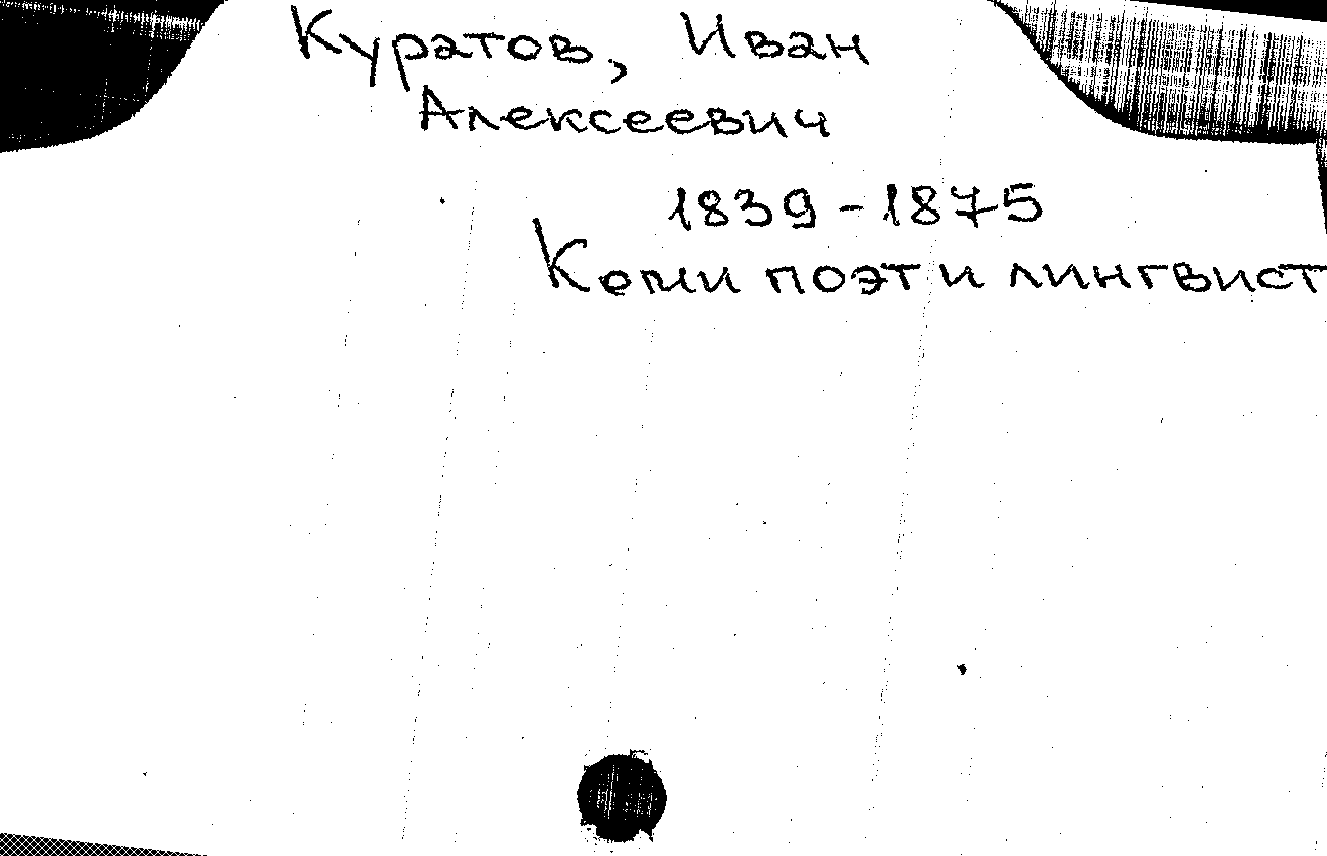 Куратов, Иван
Алексеевич
1839-1875
Коми поэт и лингвист